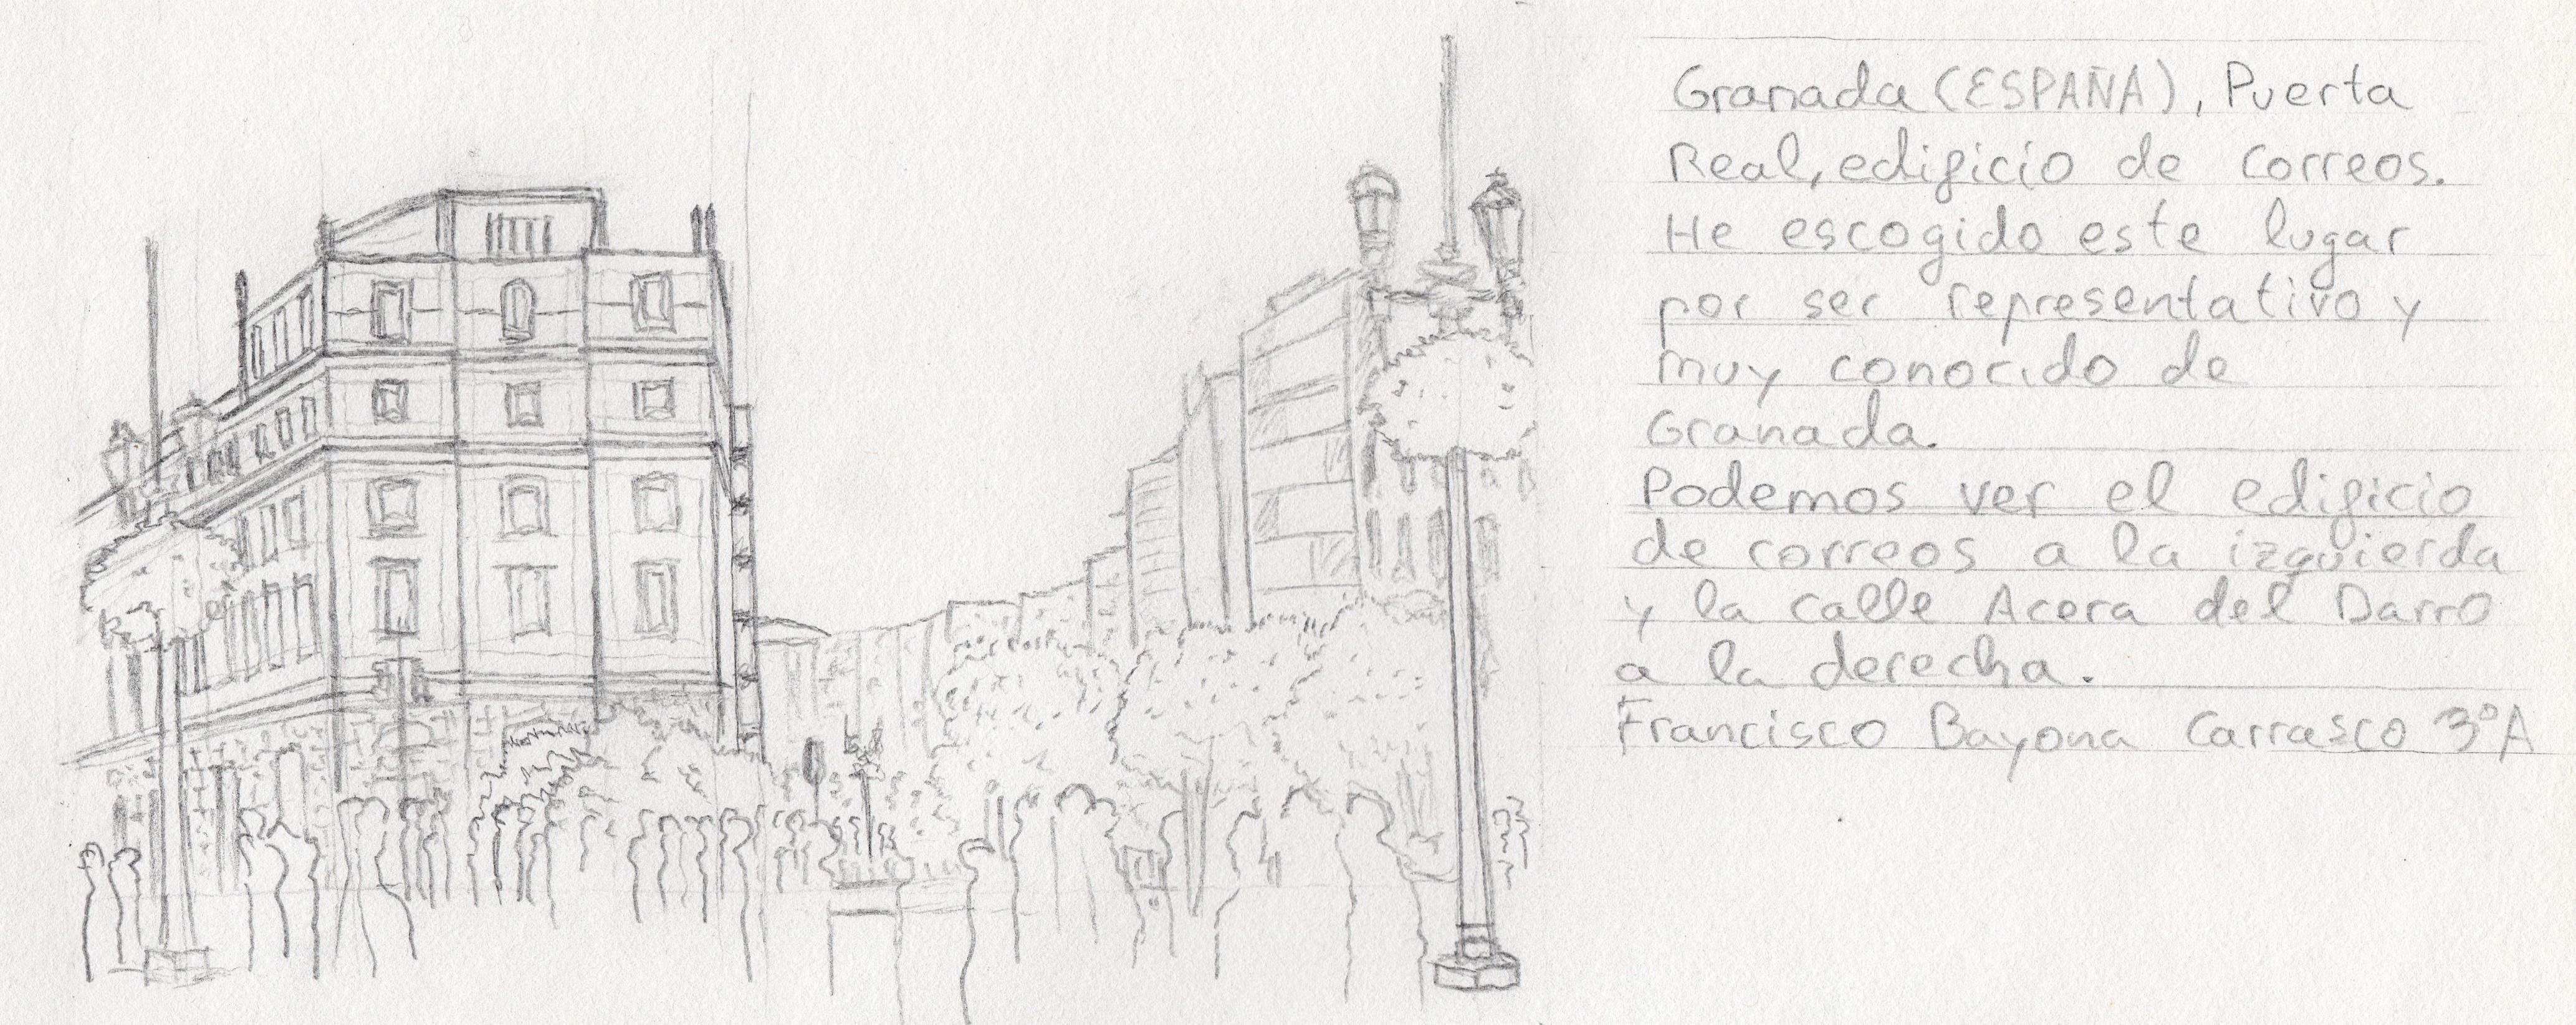 Granada (ESPAÑA), Puerta
Real, edificio de correos.
He escogido este lugar
por ser representativo y
muy conocido de
Granada.
Podemos ver el edificio
de correos a la izquierda
y la calle Acera del Darro
a la derecha.
Francisco Bayona Carrasco 3ºA